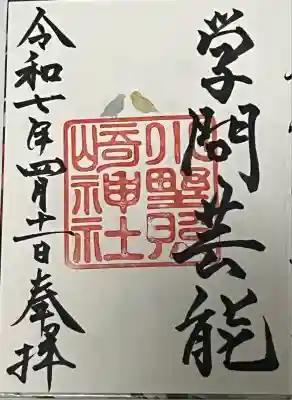 学問芸能
小野照
崎神社
令和七年四月十二日奉拝